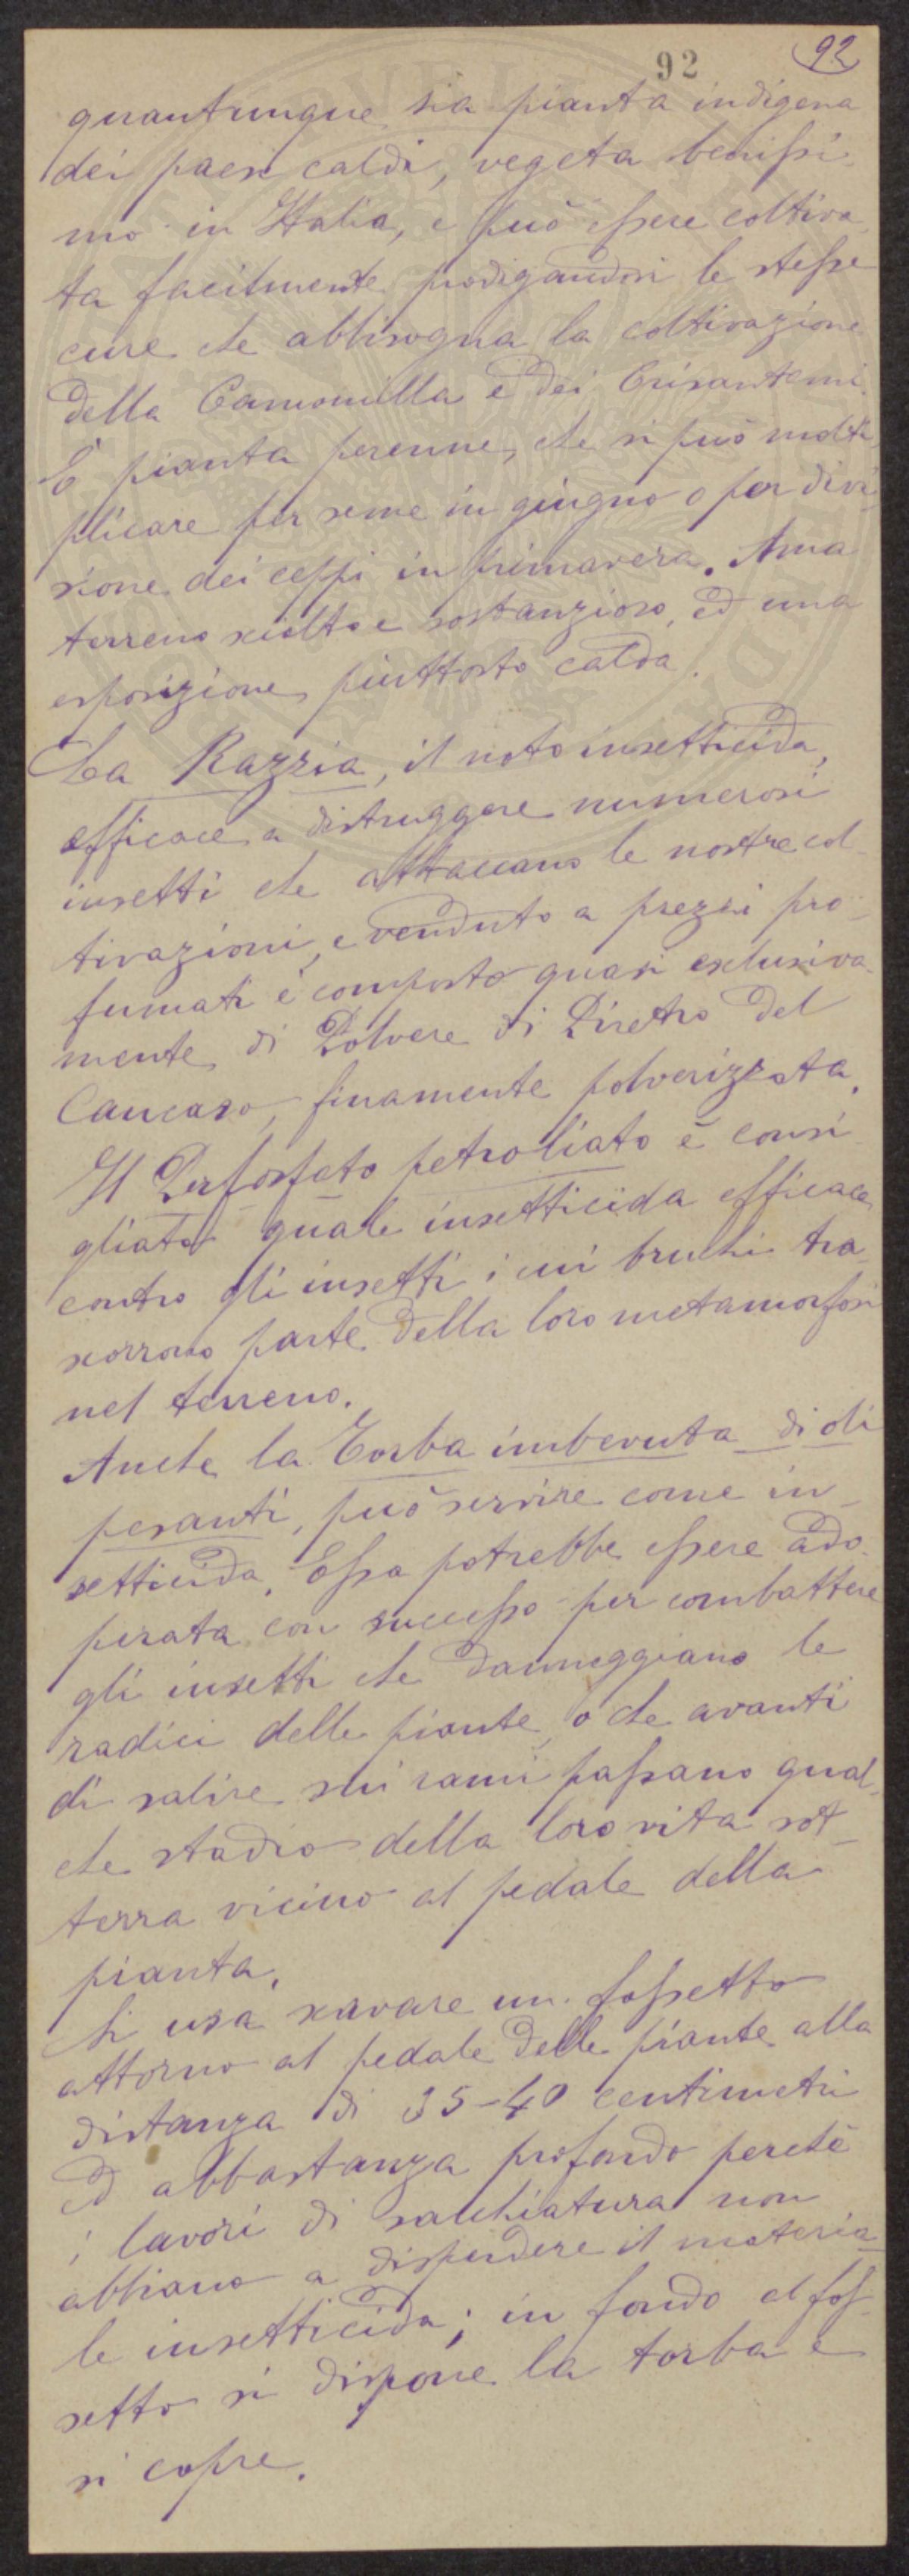 92
92
quantunque sia pianta indigena
dei paesi caldi, vegeta benissi-
mo in Italia, e può essere coltiva-
ta facilmente prodigandosi le stesse
cure che abbisogna la coltivazione
della Camomilla e dei Crisantemi.
È pianta perenne, che si può molti-
plicare per seme in giugno o per divi-
sione dei ceppi in primavera. Ama
terreno sciolto e sostanzioso, ed una
esposizione piuttosto calda.
La Razzia, il noto insetticida,
efficace a distruggere numerosi
insetti che attaccano le nostre col-
tivazioni, e venduto a prezzi pro-
fumati è composto quasi esclusiva-
mente di Polvere di Piretro del
Caucaso, finamente polverizzata.
Il Perfosfato petroliato è consi-
gliato quale insetticida efficace
contro gli insetti i cui bruchi tra-
scorrono parte della loro metamorfosi
nel terreno.
Anche la Torba imbevuta di di
pesanti, può servire come in-
setticida. Essa potrebbe essere ado-
perata con successo per combattere
gli insetti che danneggiano le
radici delle piante, o che avanti
di salire sui rami passano qual-
che stadio della loro vita sot-
terra vicino al pedale della
pianta.
Si usa scavare un fossetto
attorno al pedale delle piante alla
distanza di 35-40 centimetri
ed abbastanza profondo perchè
i lavori di sarchiatura non
abbiano a disperdere il materia-
le insetticida; in fondo al fos-
setto si dispone la torba e
si copre.